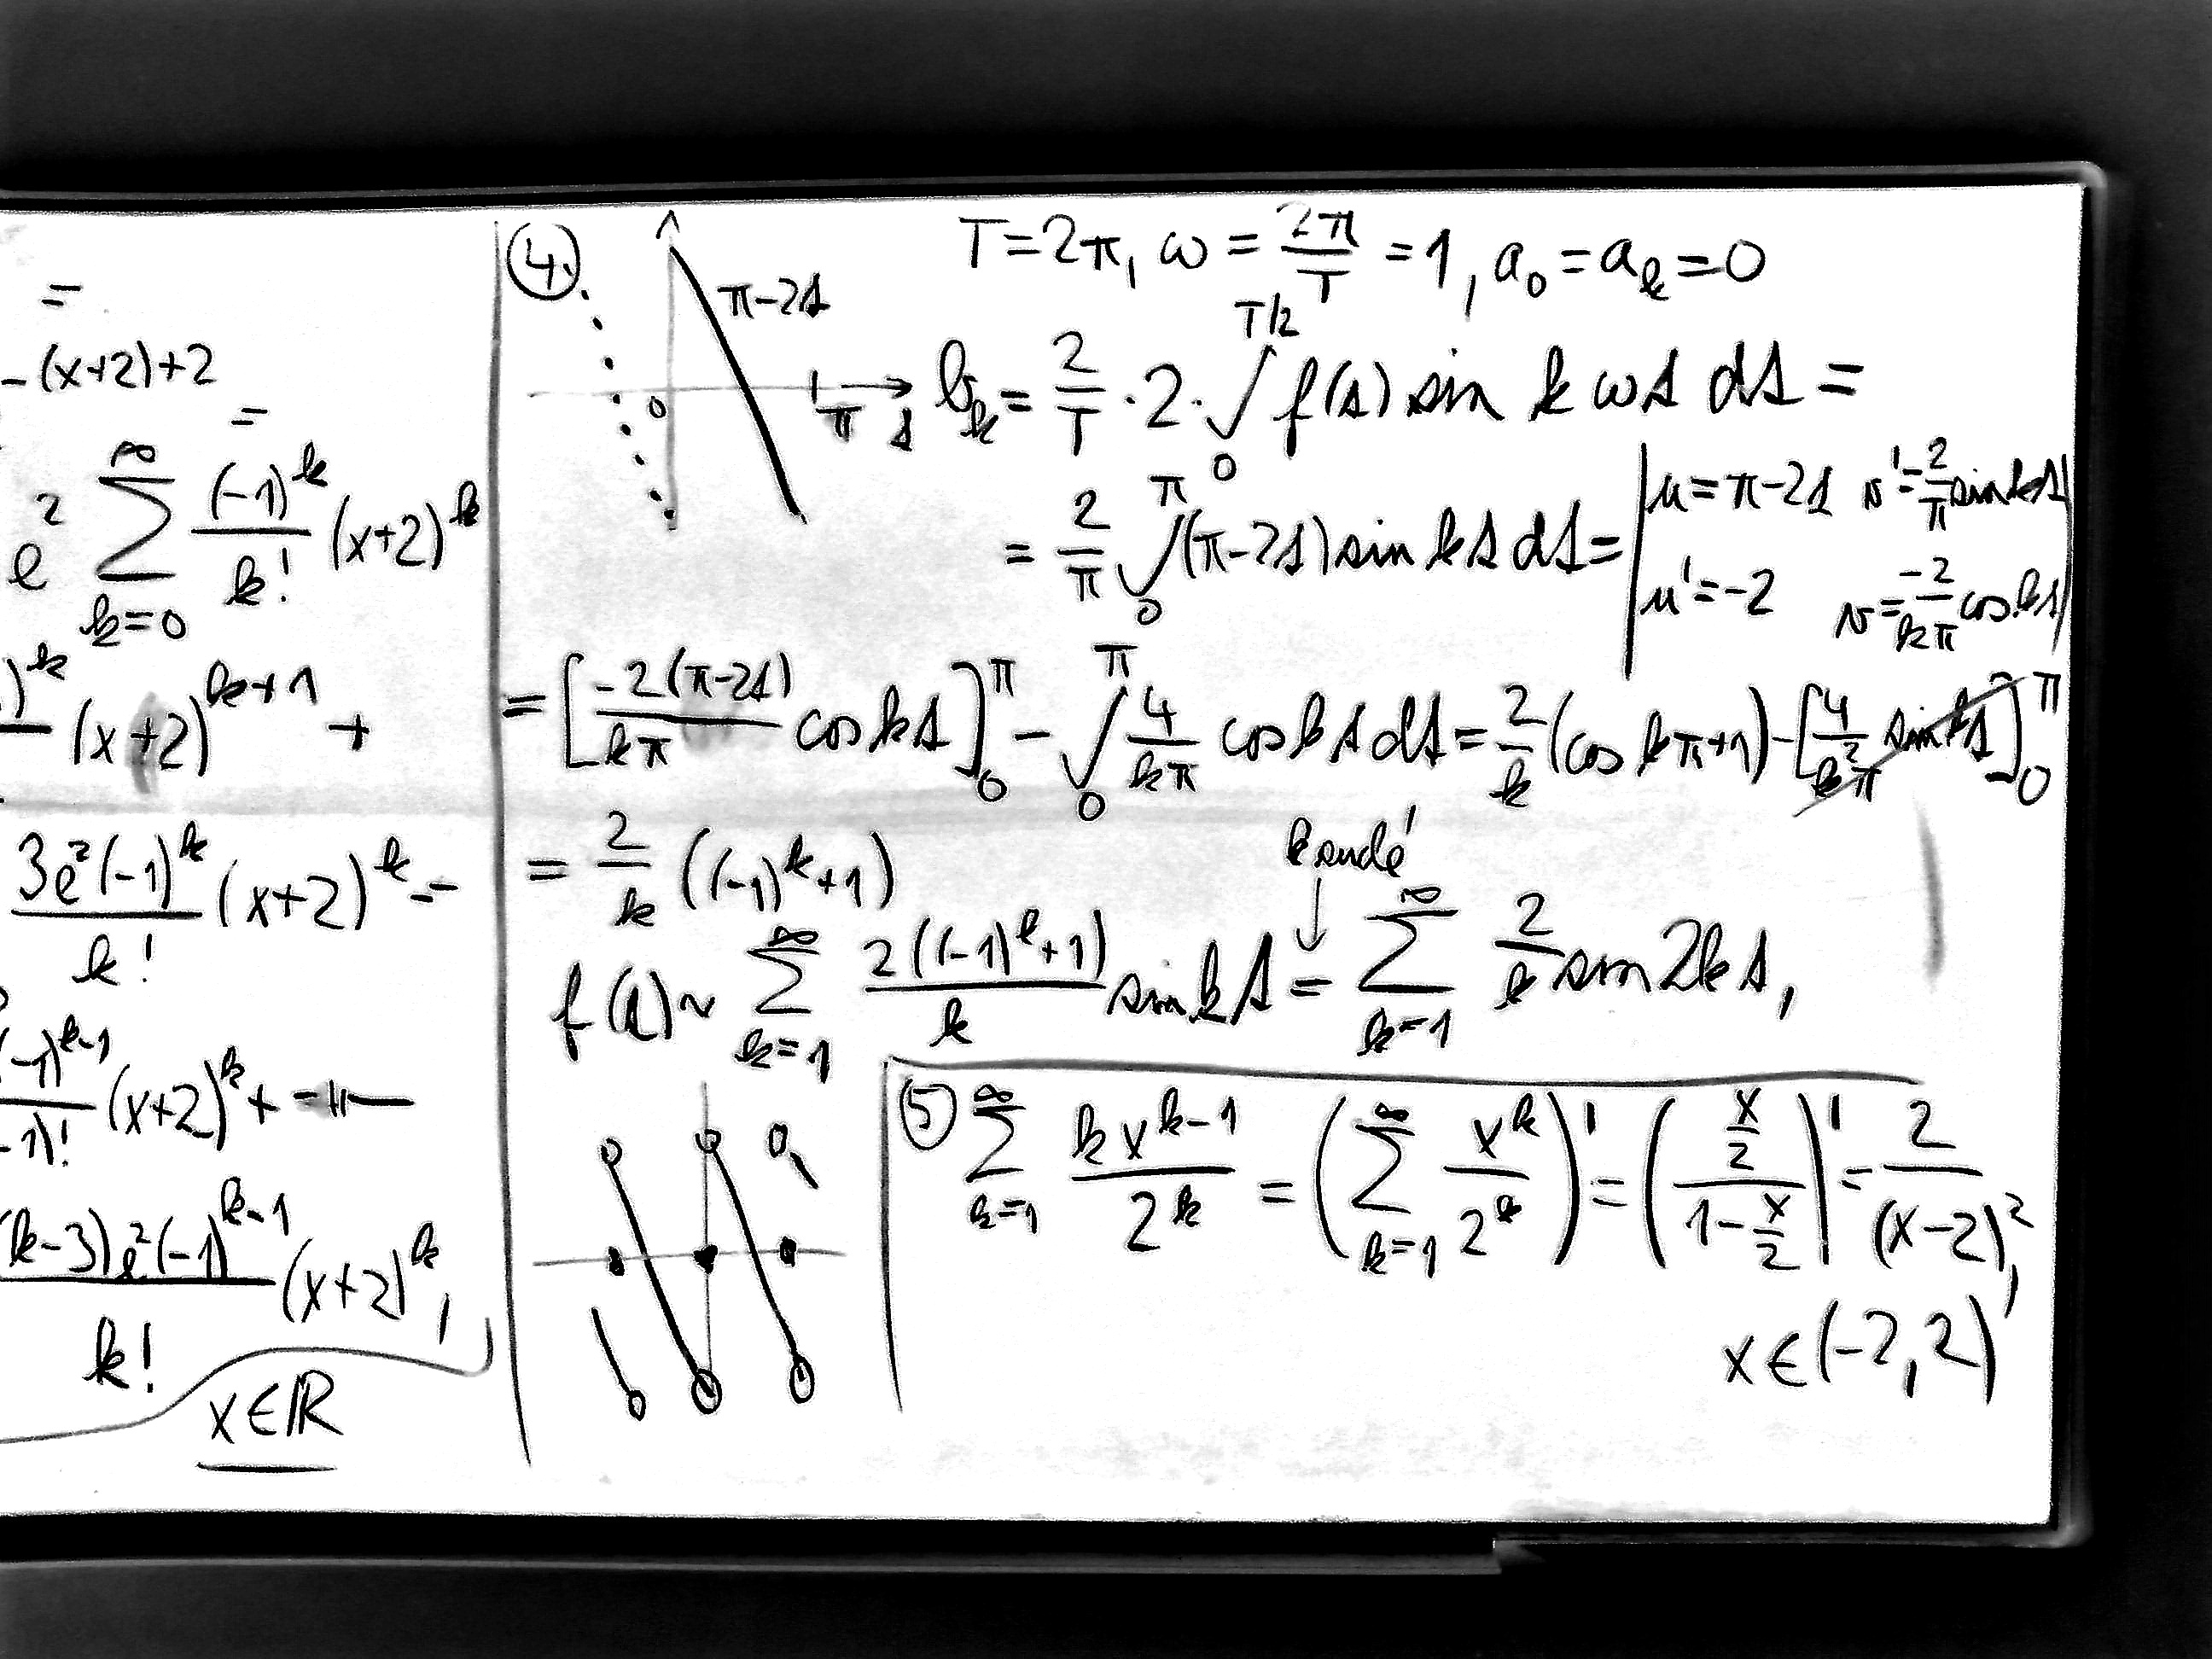 =
-(x+2)+2
=
e² ∑_{k=0}^{∞} (-1)^k/k! (x+2)^k
)^k (x+2)^{k+1} +
3e²(-1)^k/k! (x+2)^k -
(-1)^{k-1}/-1)! (x+2)^k + -"-
(k-3)e²(-1)^{k-1}/k! (x+2)^k,
x∈ℝ
4.
π-2t
0 π t
T=2π, ω = 2π/T = 1, a₀ = a_k = 0
b_k = 2/T · 2 · ∫_0^{T/2} f(t) sin kωt dt =
= 2/π ∫_0^π (π-2t) sin kt dt = | u = π-2t v' = 2/π sin kt
u' = -2 v = -2/kπ cos kt |
= [-2(π-2t)/kπ cos kt]_0^π - ∫_0^π 4/kπ cos kt dt = 2/k (cos kπ+1) - [4/k²π sin kt]_0^π
= 2/k ((-1)^k+1)
k sudé
f(t) ~ ∑_{k=1}^{∞} 2((-1)^k+1)/k sin kt = ∑_{k=1}^{∞} 2/k sin 2kt,
5 ∑_{k=1}^{∞} k x^{k-1}/2^k = (∑_{k=1}^{∞} x^k/2^k)' = ((x/2)/(1-x/2))' = 2/(x-2)²,
x∈(-2,2)